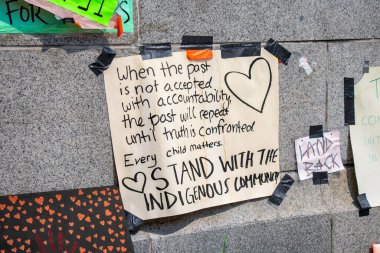 When the past
is not accepted
with accountability,
the past will repeat
until truth is confronted.
Every child matters.
STAND WITH THE
INDIGENOUS COMMUNITY
LAND
BACK